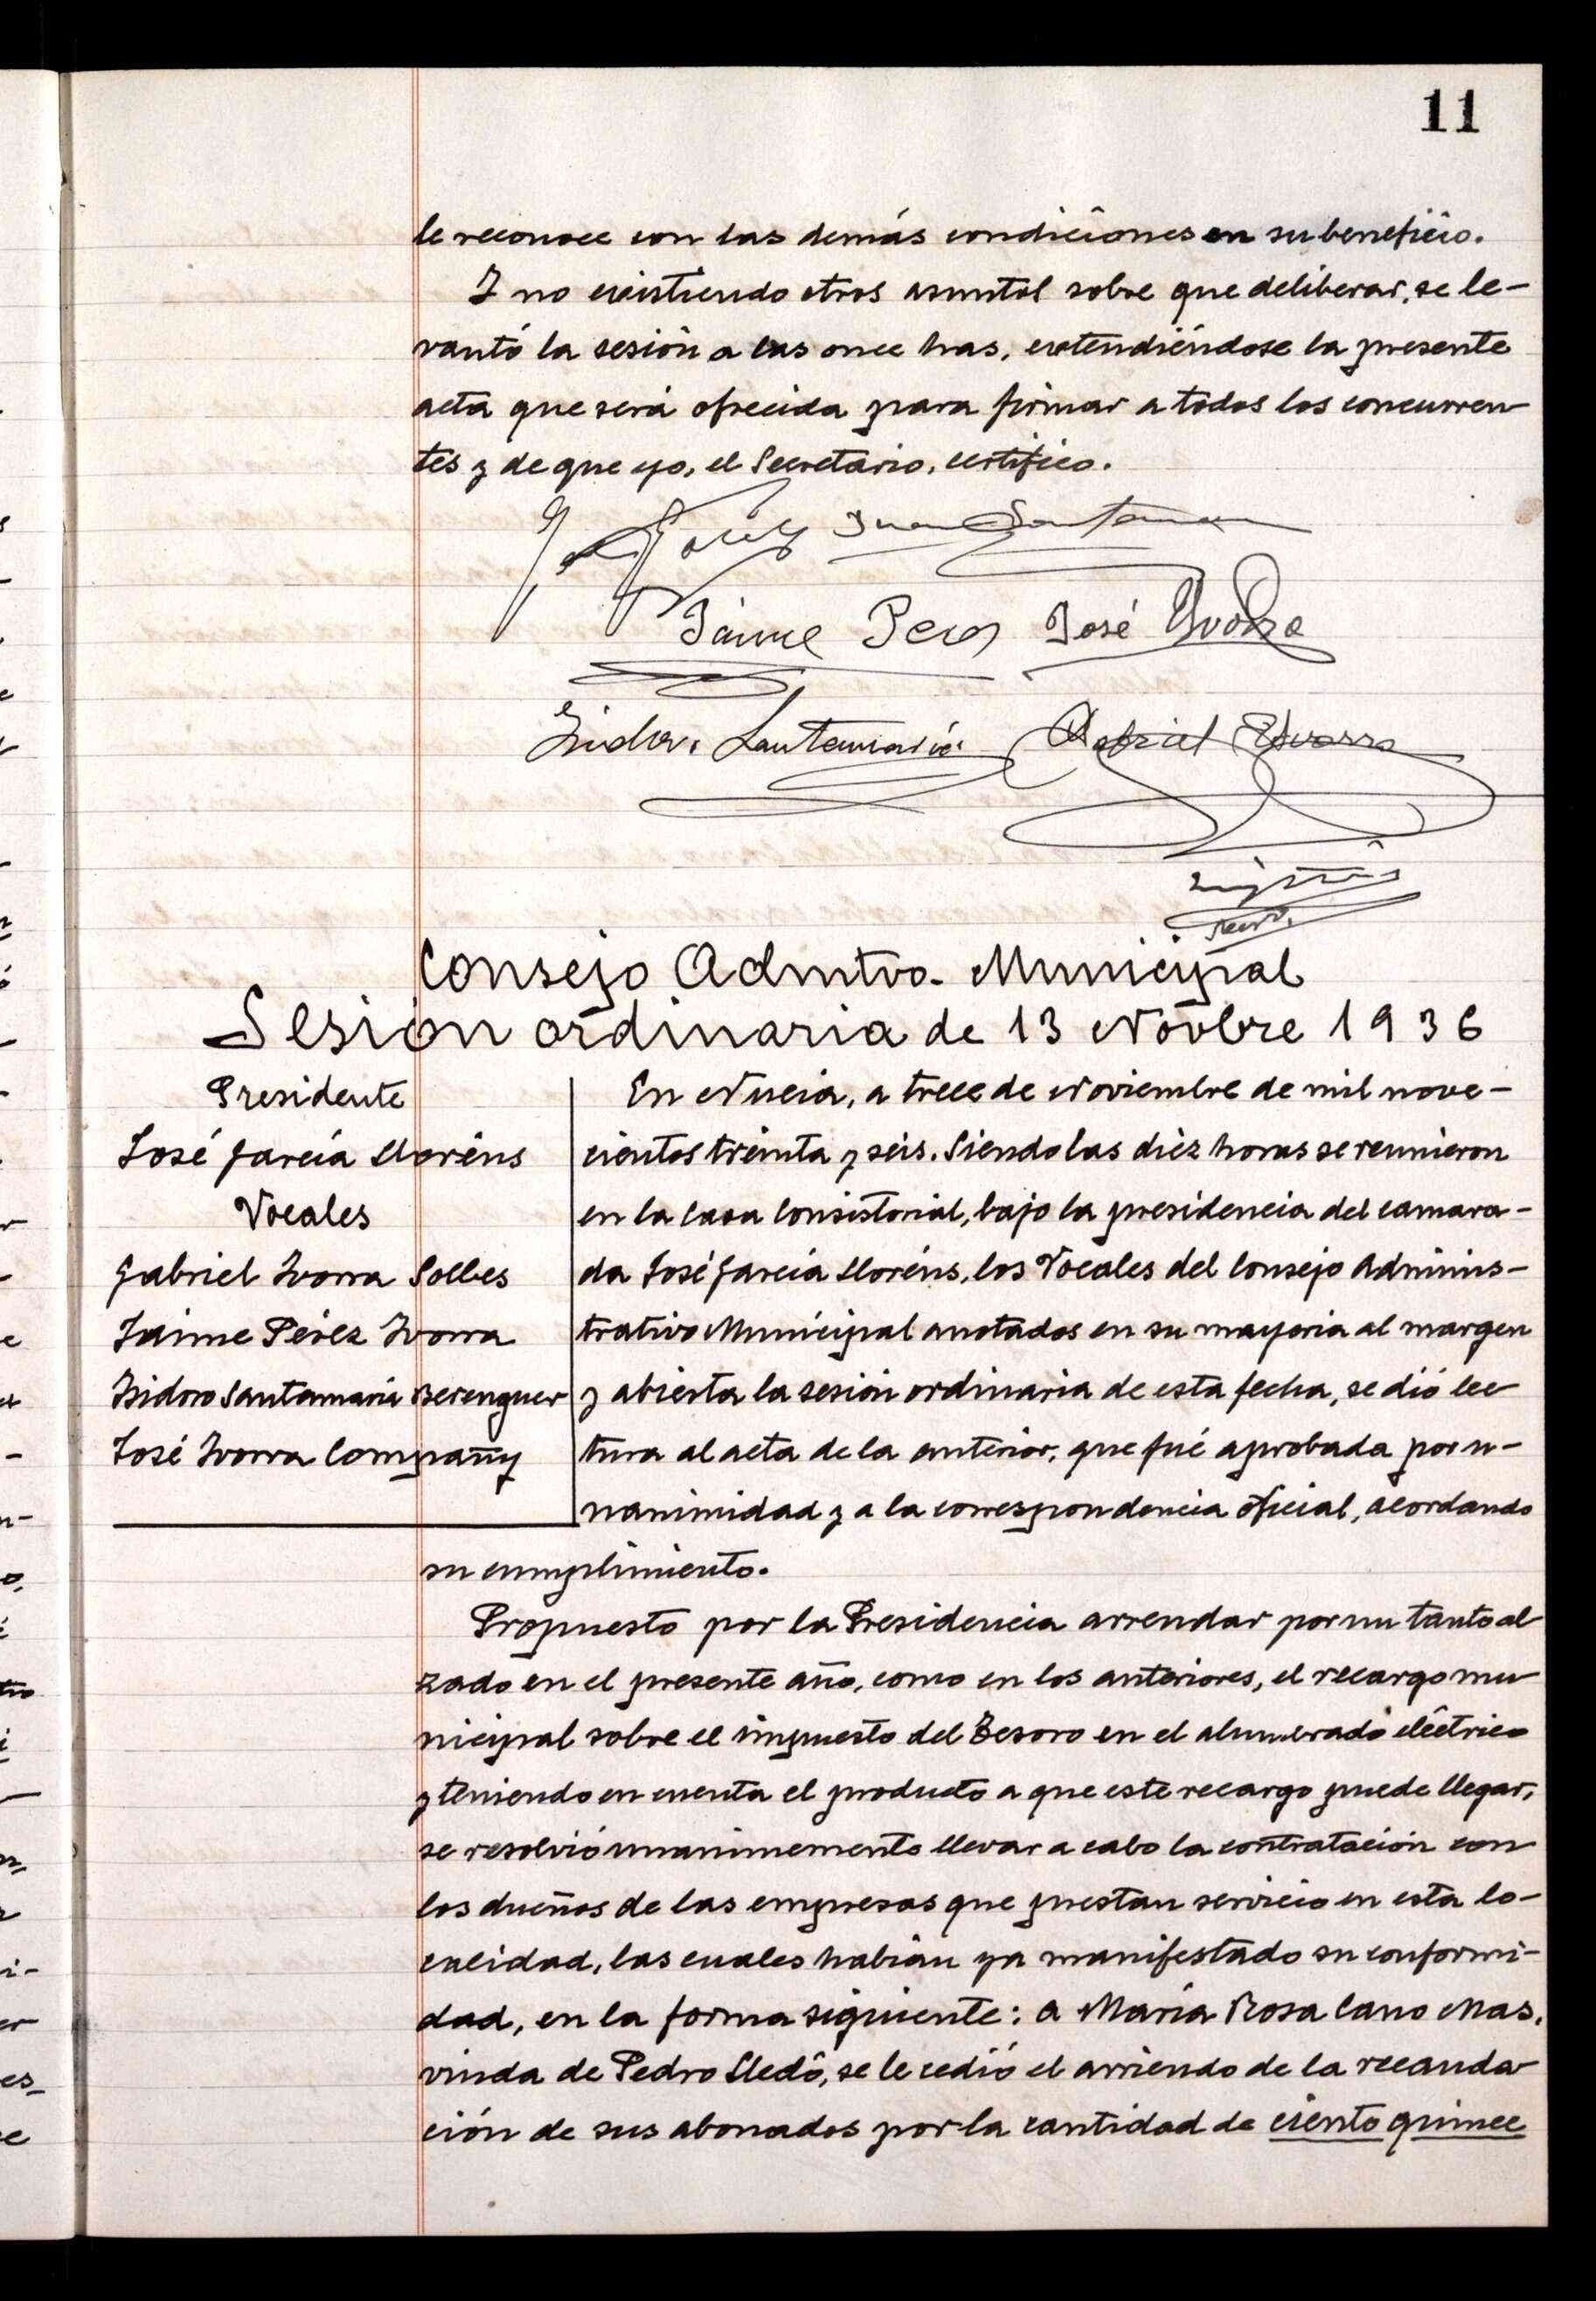 11
le reconoce con las demás condiciones en su beneficio.
Y no existiendo otros asuntos sobre que deliberar, se le-
vantó la sesión a las once hras, extendiéndose la presente
acta que será ofrecida para firmar a todos los concurren-
tes y de que yo, el Secretario, certifico.
Juan Santamaria
Jaime Perez José Yvorra
Isidoro Santamaria Gabriel Ivorra
Consejo Admtvo. Municipal
Sesión ordinaria de 13 Novbre 1936
Presidente
José García Lloréns
Vocales
Gabriel Ivorra Solbes
Jaime Pérez Ivorra
Isidoro Santamaría Berenguer
José Ivorra Compañy
En Nucia, a trece de Noviembre de mil nove-
cientos treinta y seis. Siendo las diez horas se reunieron
en la Casa Consistorial, bajo la presidencia del camara-
da José García Lloréns, los Vocales del Consejo Adminis-
trativo Municipal anotados en su mayoria al margen
y abierta la sesión ordinaria de esta fecha, se dió lec
tura al acta de la anterior, que fué aprobada por u-
nanimidad y a la correspondencia oficial, acordando
su cumplimiento.
Propuesto por la Presidencia arrendar por un tanto al
zado en el presente año, como en los anteriores, el recargo mu
nicipal sobre el impuesto del Tesoro en el alumbrado eléctrico
y teniendo en cuenta el producto a que este recargo puede llegar,
se resolvió unanimemente llevar a cabo la contratación con
los dueños de las empresas que prestan servicio en esta lo-
calidad, las cuales habían ya manifestado su conformi-
dad, en la forma siguiente: a María Rosa Cano Mas,
viuda de Pedro Lledó, se le cedió el arriendo de la recauda
ción de sus abonados por la cantidad de ciento quince